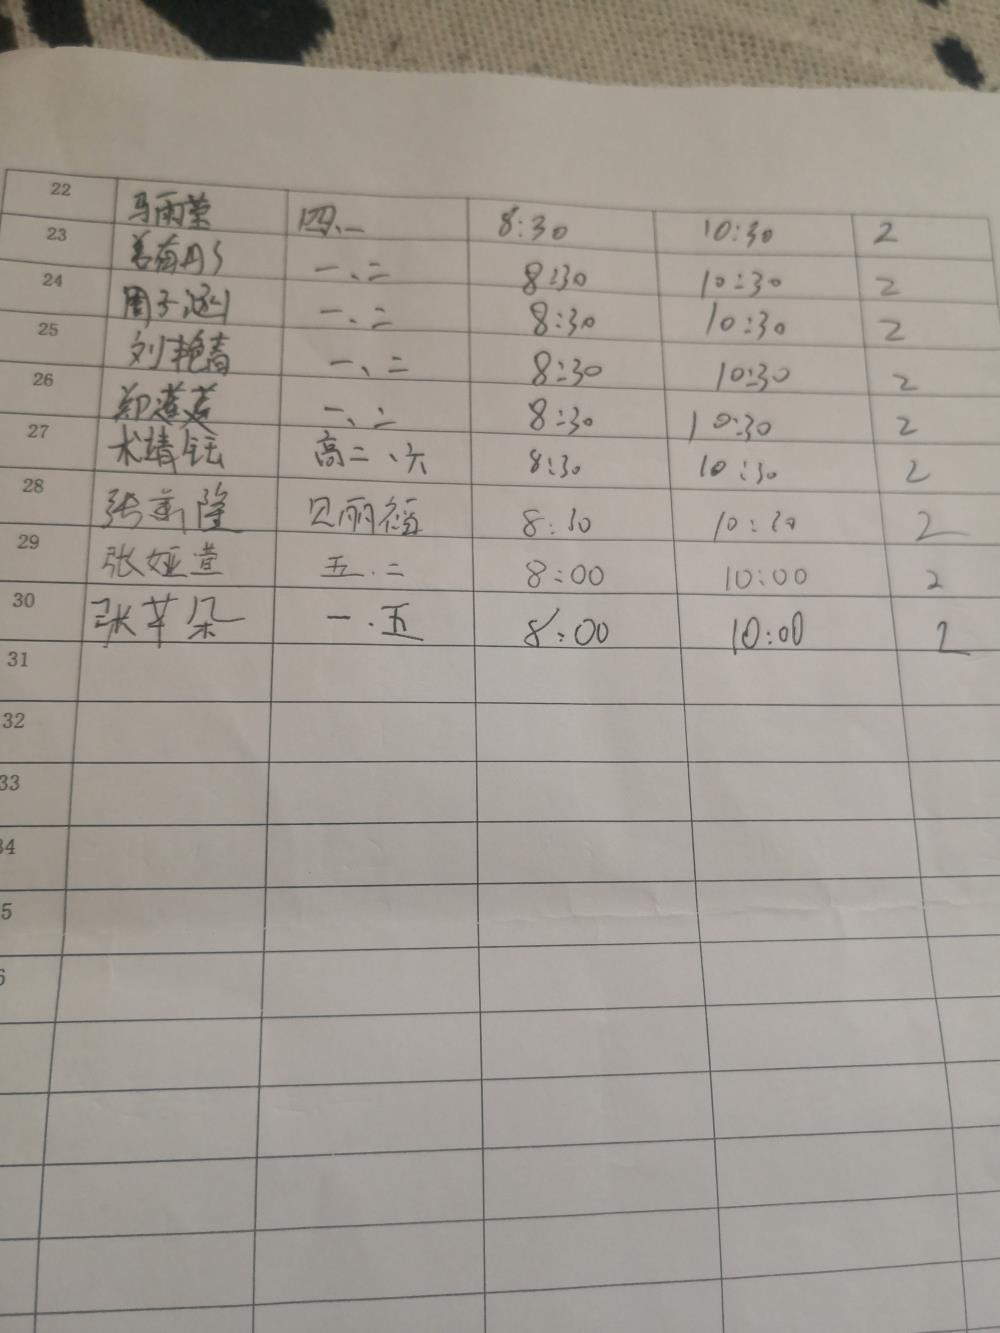 22 马雨荣 四、一 8:30 10:30 2
23 一、二 8:30 10:30 2
24 周子涵 一、二 8:30 10:30 2
25 刘艳青 一、二 8:30 10:30 2
26 郑 一、二 8:30 10:30 2
27 术靖钰 高二、六 8:30 10:30 2
28 张 隆 8:30 10:30 2
29 张娅萱 五.二 8:00 10:00 2
30 张芊朵 一.五 8:00 10:00 2
31
32
33
34
5
6